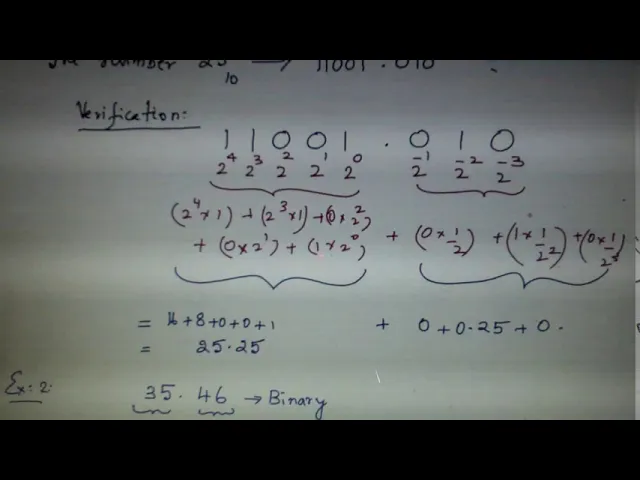 number 25 10 → 11001.010
Verification:
1 1 0 0 1 . 0 1 0
2^4 2^3 2^2 2^1 2^0 2^-1 2^-2 2^-3
(2^4×1) + (2^3×1) + (0×2^2)
+ (0×2^1) + (1×2^0) + (0×1/2) + (1×1/2^2) + (0×1/2^3)
= 16+8+0+0+1 + 0+0.25+0.
= 25.25
Ex: 2. 35.46 → Binary